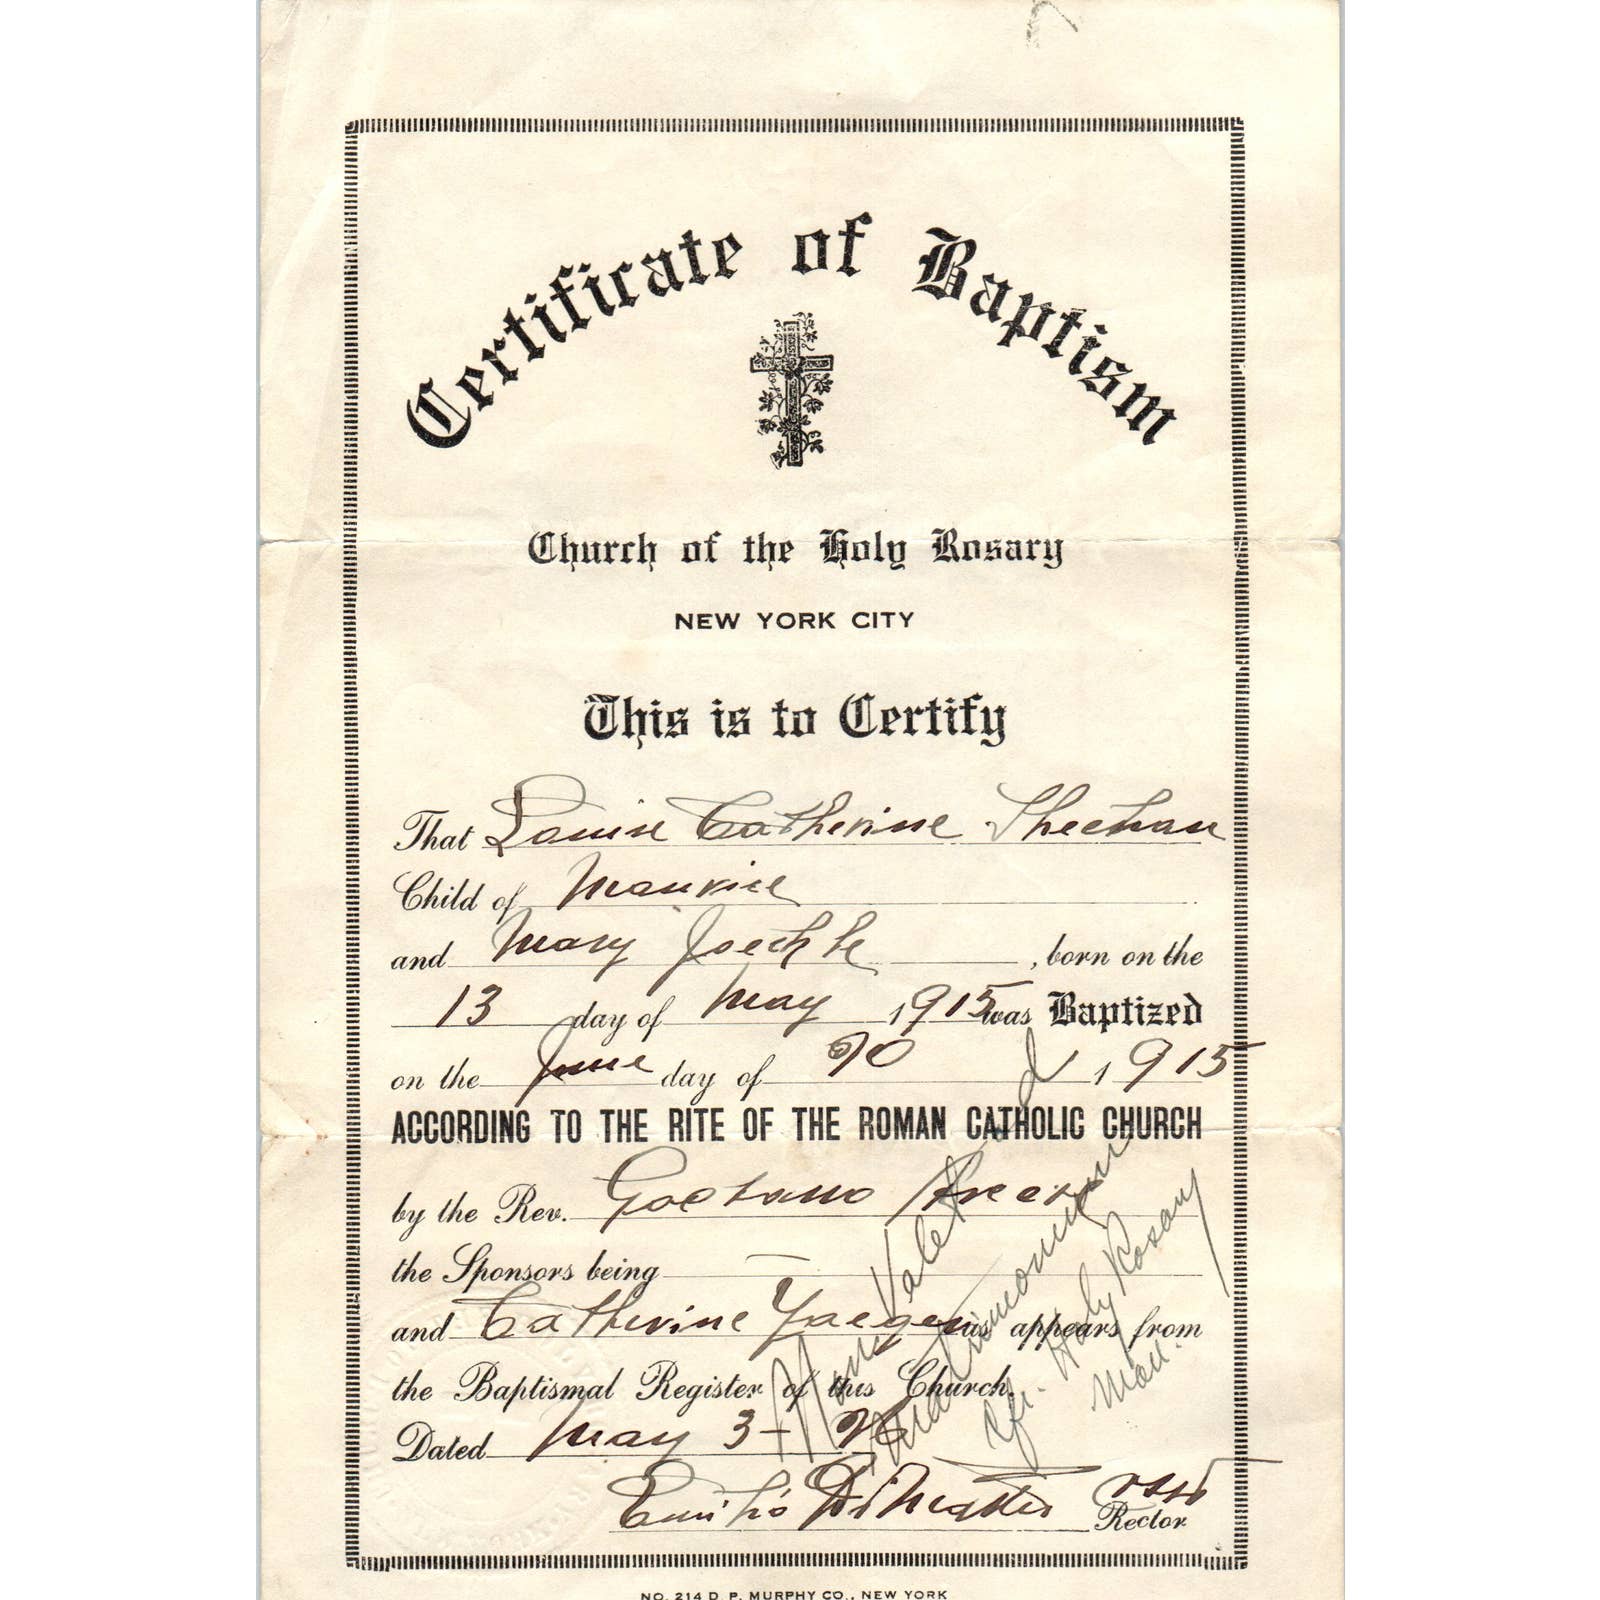 Certificate of Baptism
Church of the Holy Rosary
NEW YORK CITY
This is to Certify
That Louise Catherine Sheehan
Child of Maurice
and Mary Joechle, born on the
13 day of May 1915 was Baptized
on the June day of 20 1915
ACCORDING TO THE RITE OF THE ROMAN CATHOLIC CHURCH
by the Rev. Gaetano
the Sponsors being —
and Catherine Yaeger as appears from
the Baptismal Register of this Church.
Dated May 3- 26
Rector
Holy Rosary
NO. 214 D. P. MURPHY CO., NEW YORK